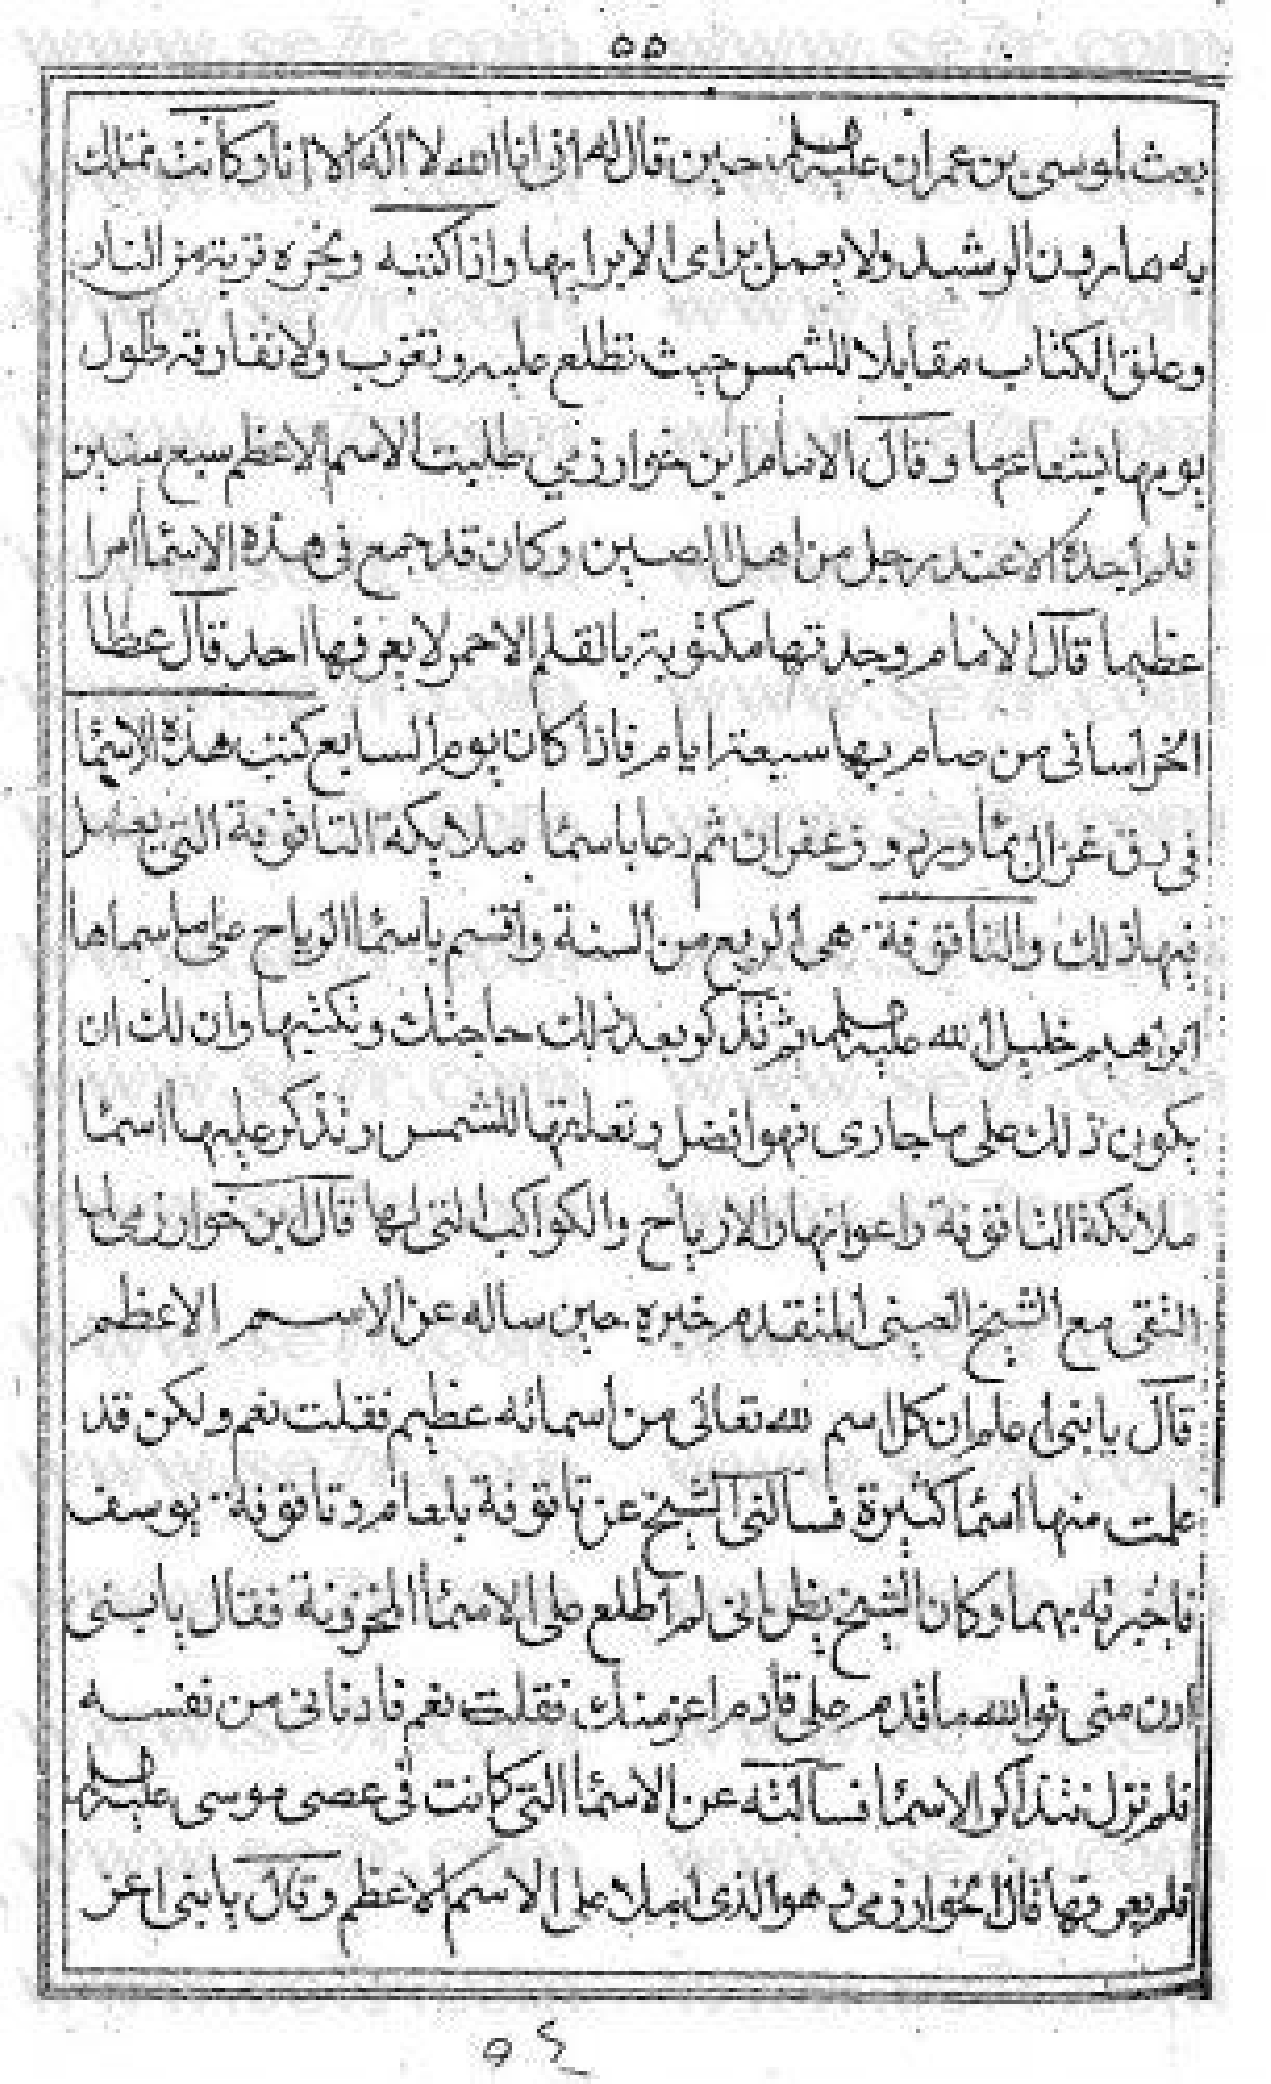 ٥٥
بعث لموسى بن عمران عليه السلم حين قال له انى انا الله لا اله الا انا وكانت تملك
به هارون الرشيد ولا يعمل براى الا برايها واذا كتبه وبخره تربته من النار
وعلق الكتاب مقابلا للشمس حيث تطلع عليه وتغرب ولا تفارقه طول
يومها بشعاعها وقال الامام ابن خوارزمي طلبت الاسم الاعظم سبع سنين
فلم اجده الا عند رجل من اهل الصين وكان قد جمع فى هذه الاسما امرا
عظيما قال الامام وجدتها مكتوبة بالقلم الاحمر لا يعرفها احد قال عطا
الخراسانى من صام بها سبعة ايام فاذا كان يوم السابع كتب هذه الاسما
فى رق غزال بماورد وزعفران ثم دعا باسما ملايكة التاقوفة التى يعمل
فيها ذلك والتاقوفة هى الربع من السنة واقسم باسما الرياح على ما سماها
ابراهيم خليل الله عليه السلم ثم تذكر بعد ذلك حاجتك وتكتبها وان لك ان
يكون ذلك على ما جارى فهو افضل وتعلقها للشمس وتذكر عليها اسما
ملائكة التاقوفة واعوانها والارياح والكواكب التى لها قال ابن خوارزمى لما
التقى مع الشيخ الصينى المتقدم خبره حين ساله عن الاسم الاعظم
قال يا بنى اعلم ان كل اسم لله تعالى من اسمائه عظيم فقلت نعم ولكن قد
علمت منها اسما كثيرة فسالنى الشيخ عن تاقوفة بلعام وتاقوفة يوسف
فاخبرته بهما وكان الشيخ يظن انى لم اطلع على الاسما المخزونة فقال يا بنى
ادن منى فوالله ما قدم على قادم اعز منك فقلت نعم فادنانى من نفسه
فلم نزل نتذاكر الاسما فسالته عن الاسما التى كانت فى عصى موسى عليه السلم
فلم يعرفها قال الخوارزمى وهو الذى املا على الاسم الاعظم وقال يا بنى اعز
٥٤